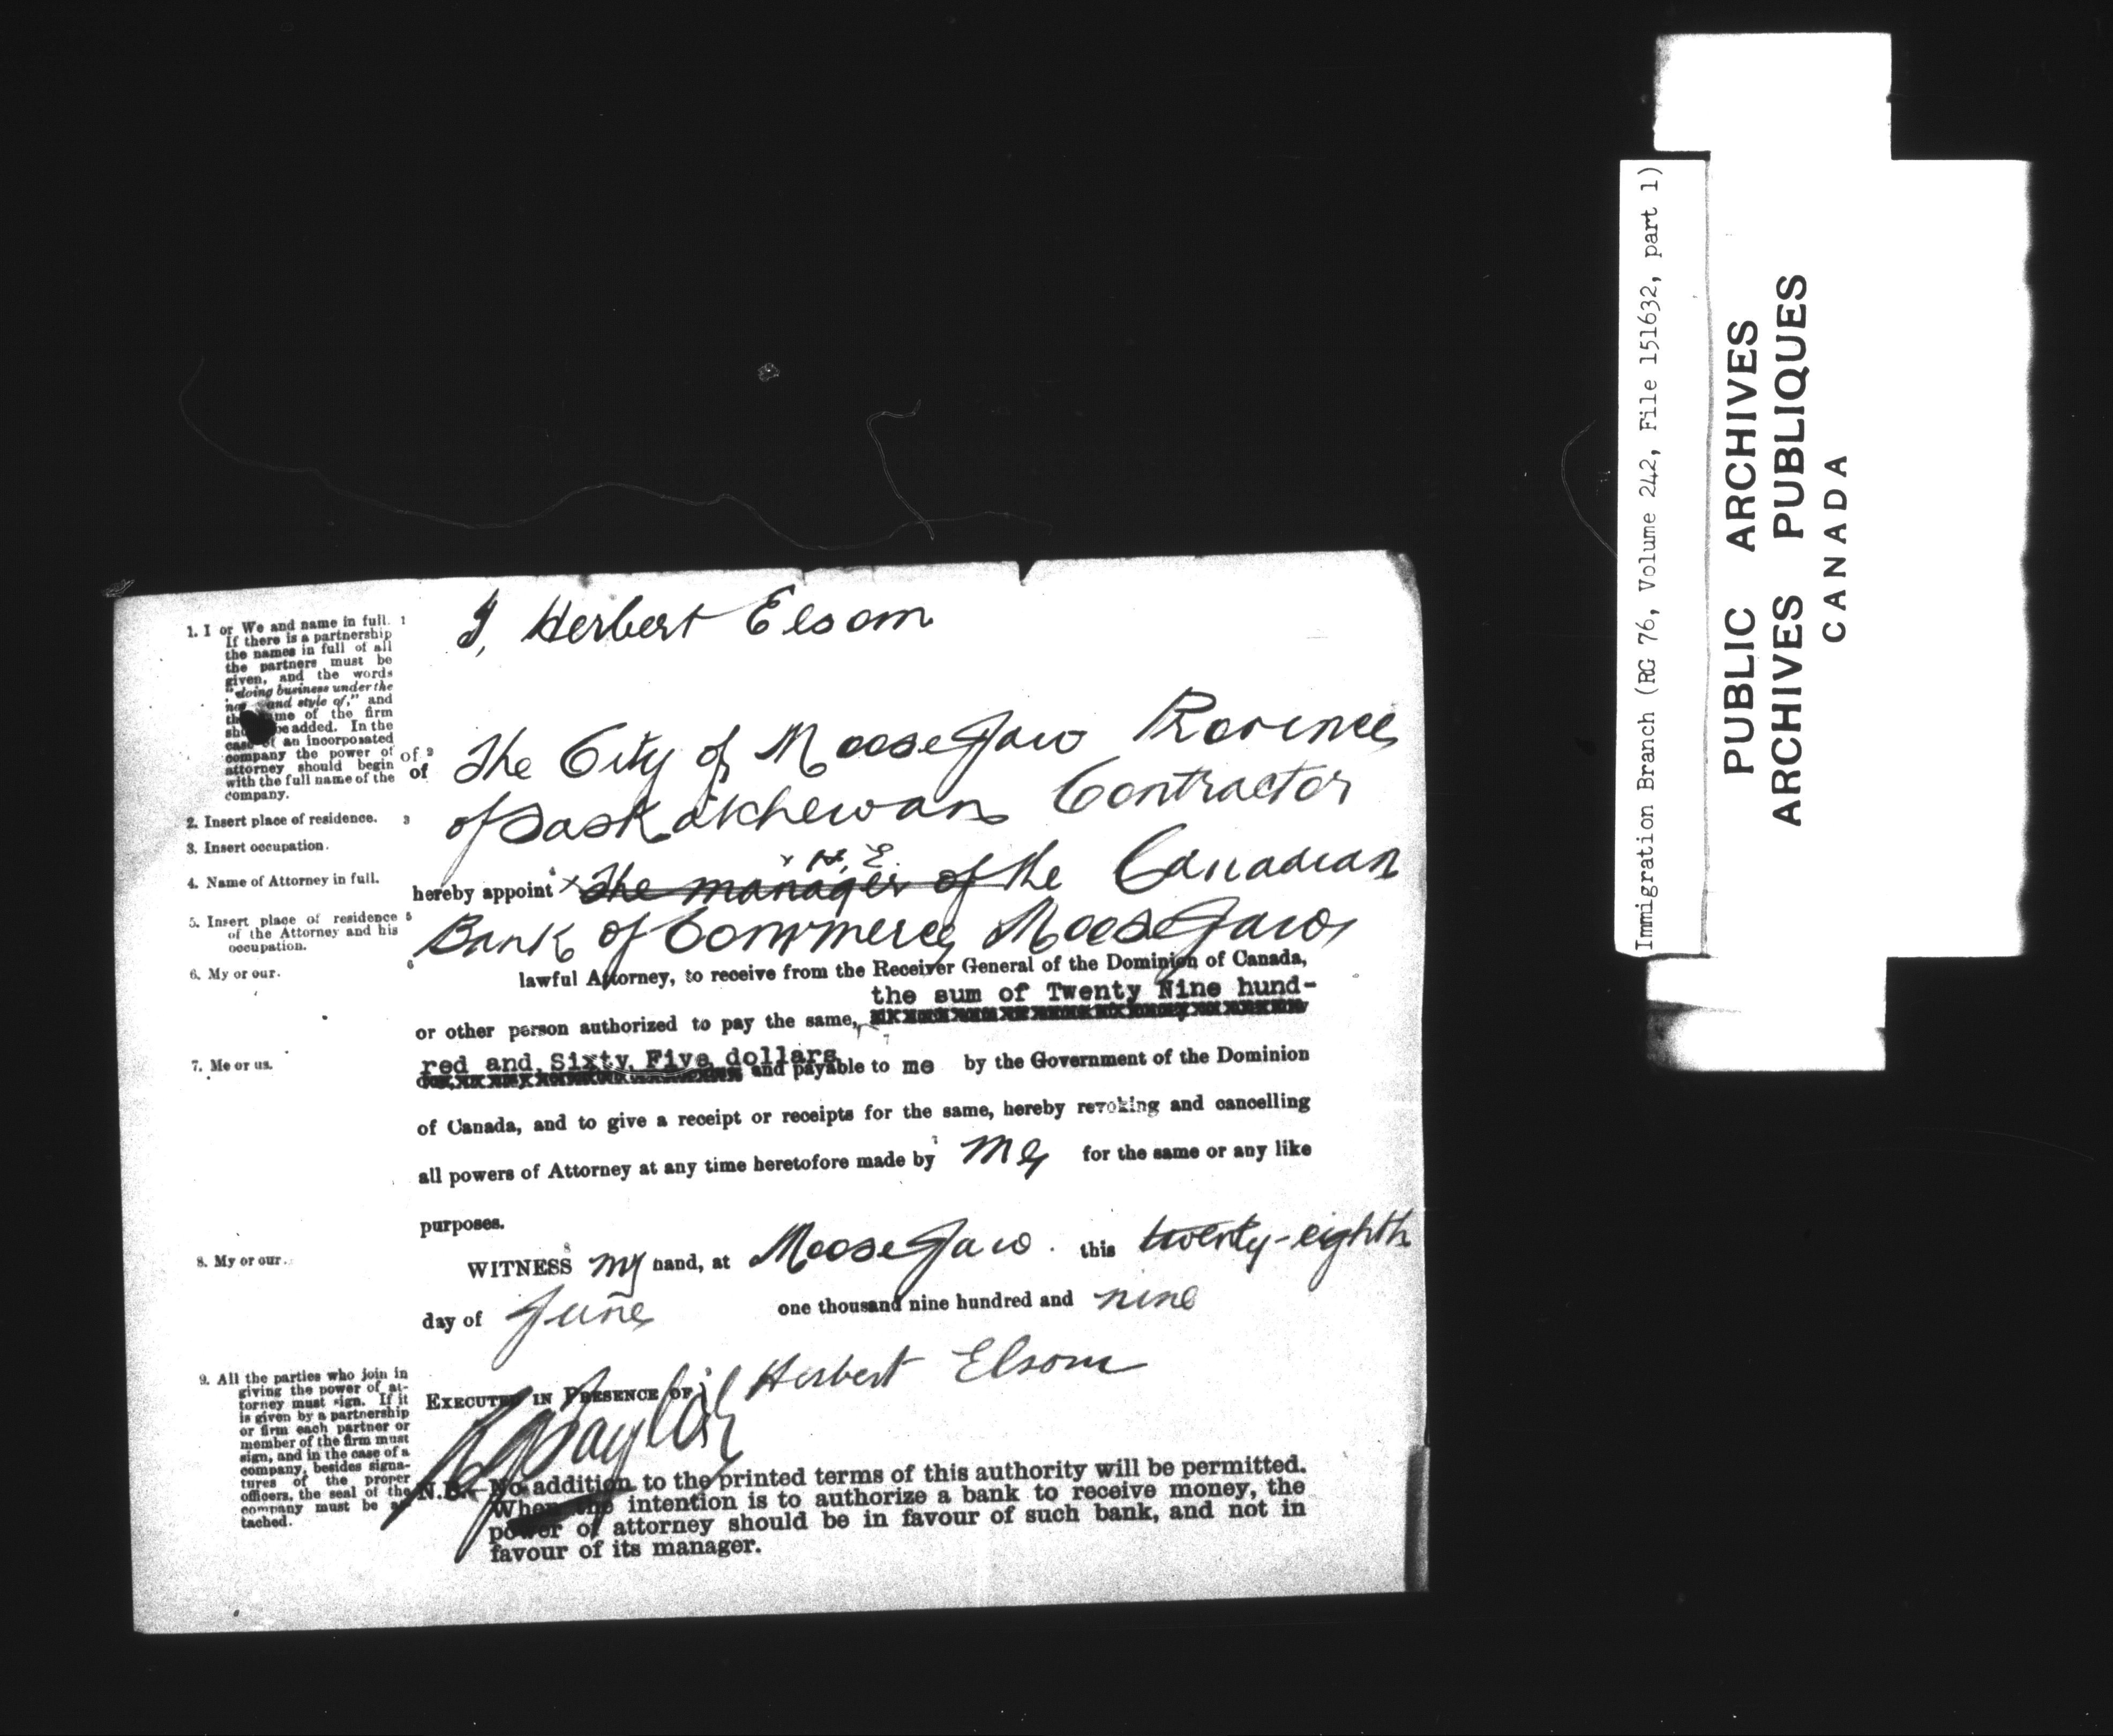 1. I or We and name in full.
If there is a partnership
the names in full of all
the partners must be
given, and the words
"doing business under the
and style of," and
of the firm
be added. In the
case of an incorporated
company the power of
attorney should begin
with the full name of the
company.
2. Insert place of residence.
3. Insert occupation.
4. Name of Attorney in full.
5. Insert place of residence
of the Attorney and his
occupation.
6. My or our.
7. Me or us.
8. My or our.
9. All the parties who join in
giving the power of at-
torney must sign. If it
is given by a partnership
or firm each partner or
member of the firm must
sign, and in the case of a
company, besides signa-
tures of the proper
officers, the seal of the
company must be at-
tached.
1 I, Herbert Elsom
of 2
of The City of Moose Jaw Province
3 of Saskatchewan Contractor
x H. E.
hereby appoint 4 x the manager of the Canadian
5 Bank of Commerce, Moose Jaw,
6 lawful Attorney, to receive from the Receiver General of the Dominion of Canada,
the sum of Twenty Nine hund-
or other person authorized to pay the same,
7
red and Sixty Five dollars
and payable to me by the Government of the Dominion
of Canada, and to give a receipt or receipts for the same, hereby revoking and cancelling
all powers of Attorney at any time heretofore made by 7 me for the same or any like
purposes.
WITNESS 8 my hand, at Moose Jaw. this twenty-eighth
day of June one thousand nine hundred and nine
EXECUTED IN PRESENCE OF 9 Herbert Elsom
Baylor
N.B.—No addition to the printed terms of this authority will be permitted.
When the intention is to authorize a bank to receive money, the
power of attorney should be in favour of such bank, and not in
favour of its manager.
Immigration Branch (RG 76, Volume 242, File 151632, part 1)
PUBLIC ARCHIVES
ARCHIVES PUBLIQUES
CANADA